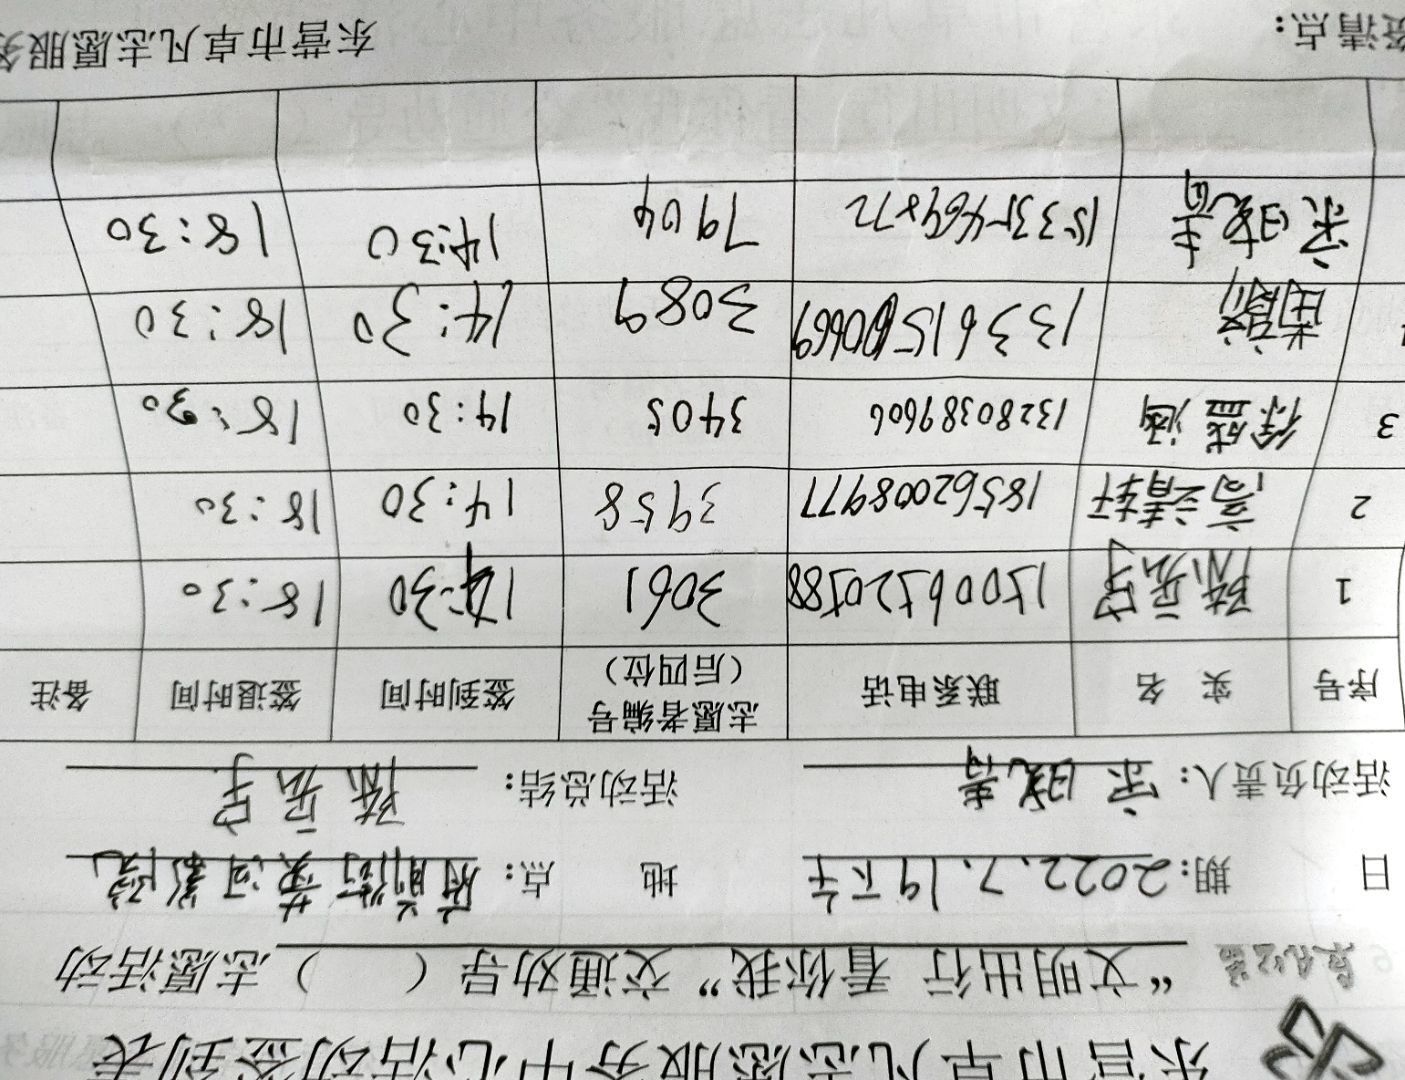 东营市卓凡志愿服务中心活动签到表
“文明出行 看你我”交通劝导（ ）志愿活动
日 期：2022.7.19下午 地 点：府前街黄河影院
活动负责人：宗晓青 活动总结：陈岳宇
序号 实 名 联系电话 志愿者编号（后四位） 签到时间 签退时间 备注
1 陈岳宇 15006520588 3061 14:30 18:30
2 高靖轩 18562008977 3958 14:30 18:30
3 徐盛涵 13280389606 3405 14:30 18:30
13361510669 3089 14:30 18:30
宗晓青 15335469872 7904 14:30 18:30
清点： 东营市卓凡志愿服务